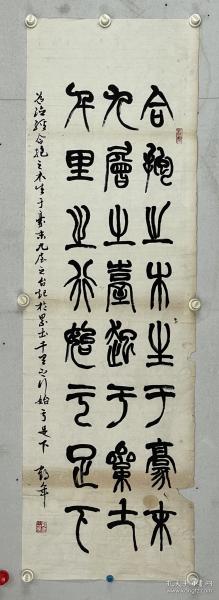 合抱之木生于豪末
九層之臺起于絫土
千里之行始于足下
合抱之木生于豪末九层之台起於累土千里之行始于足下